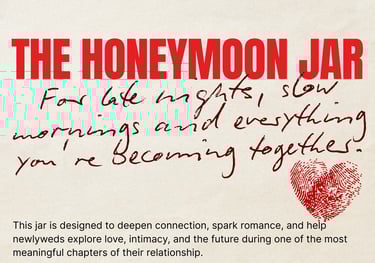 THE HONEYMOON JAR
For late nights, slow
mornings and everything
you're becoming together.
This jar is designed to deepen connection, spark romance, and help
newlyweds explore love, intimacy, and the future during one of the most
meaningful chapters of their relationship.